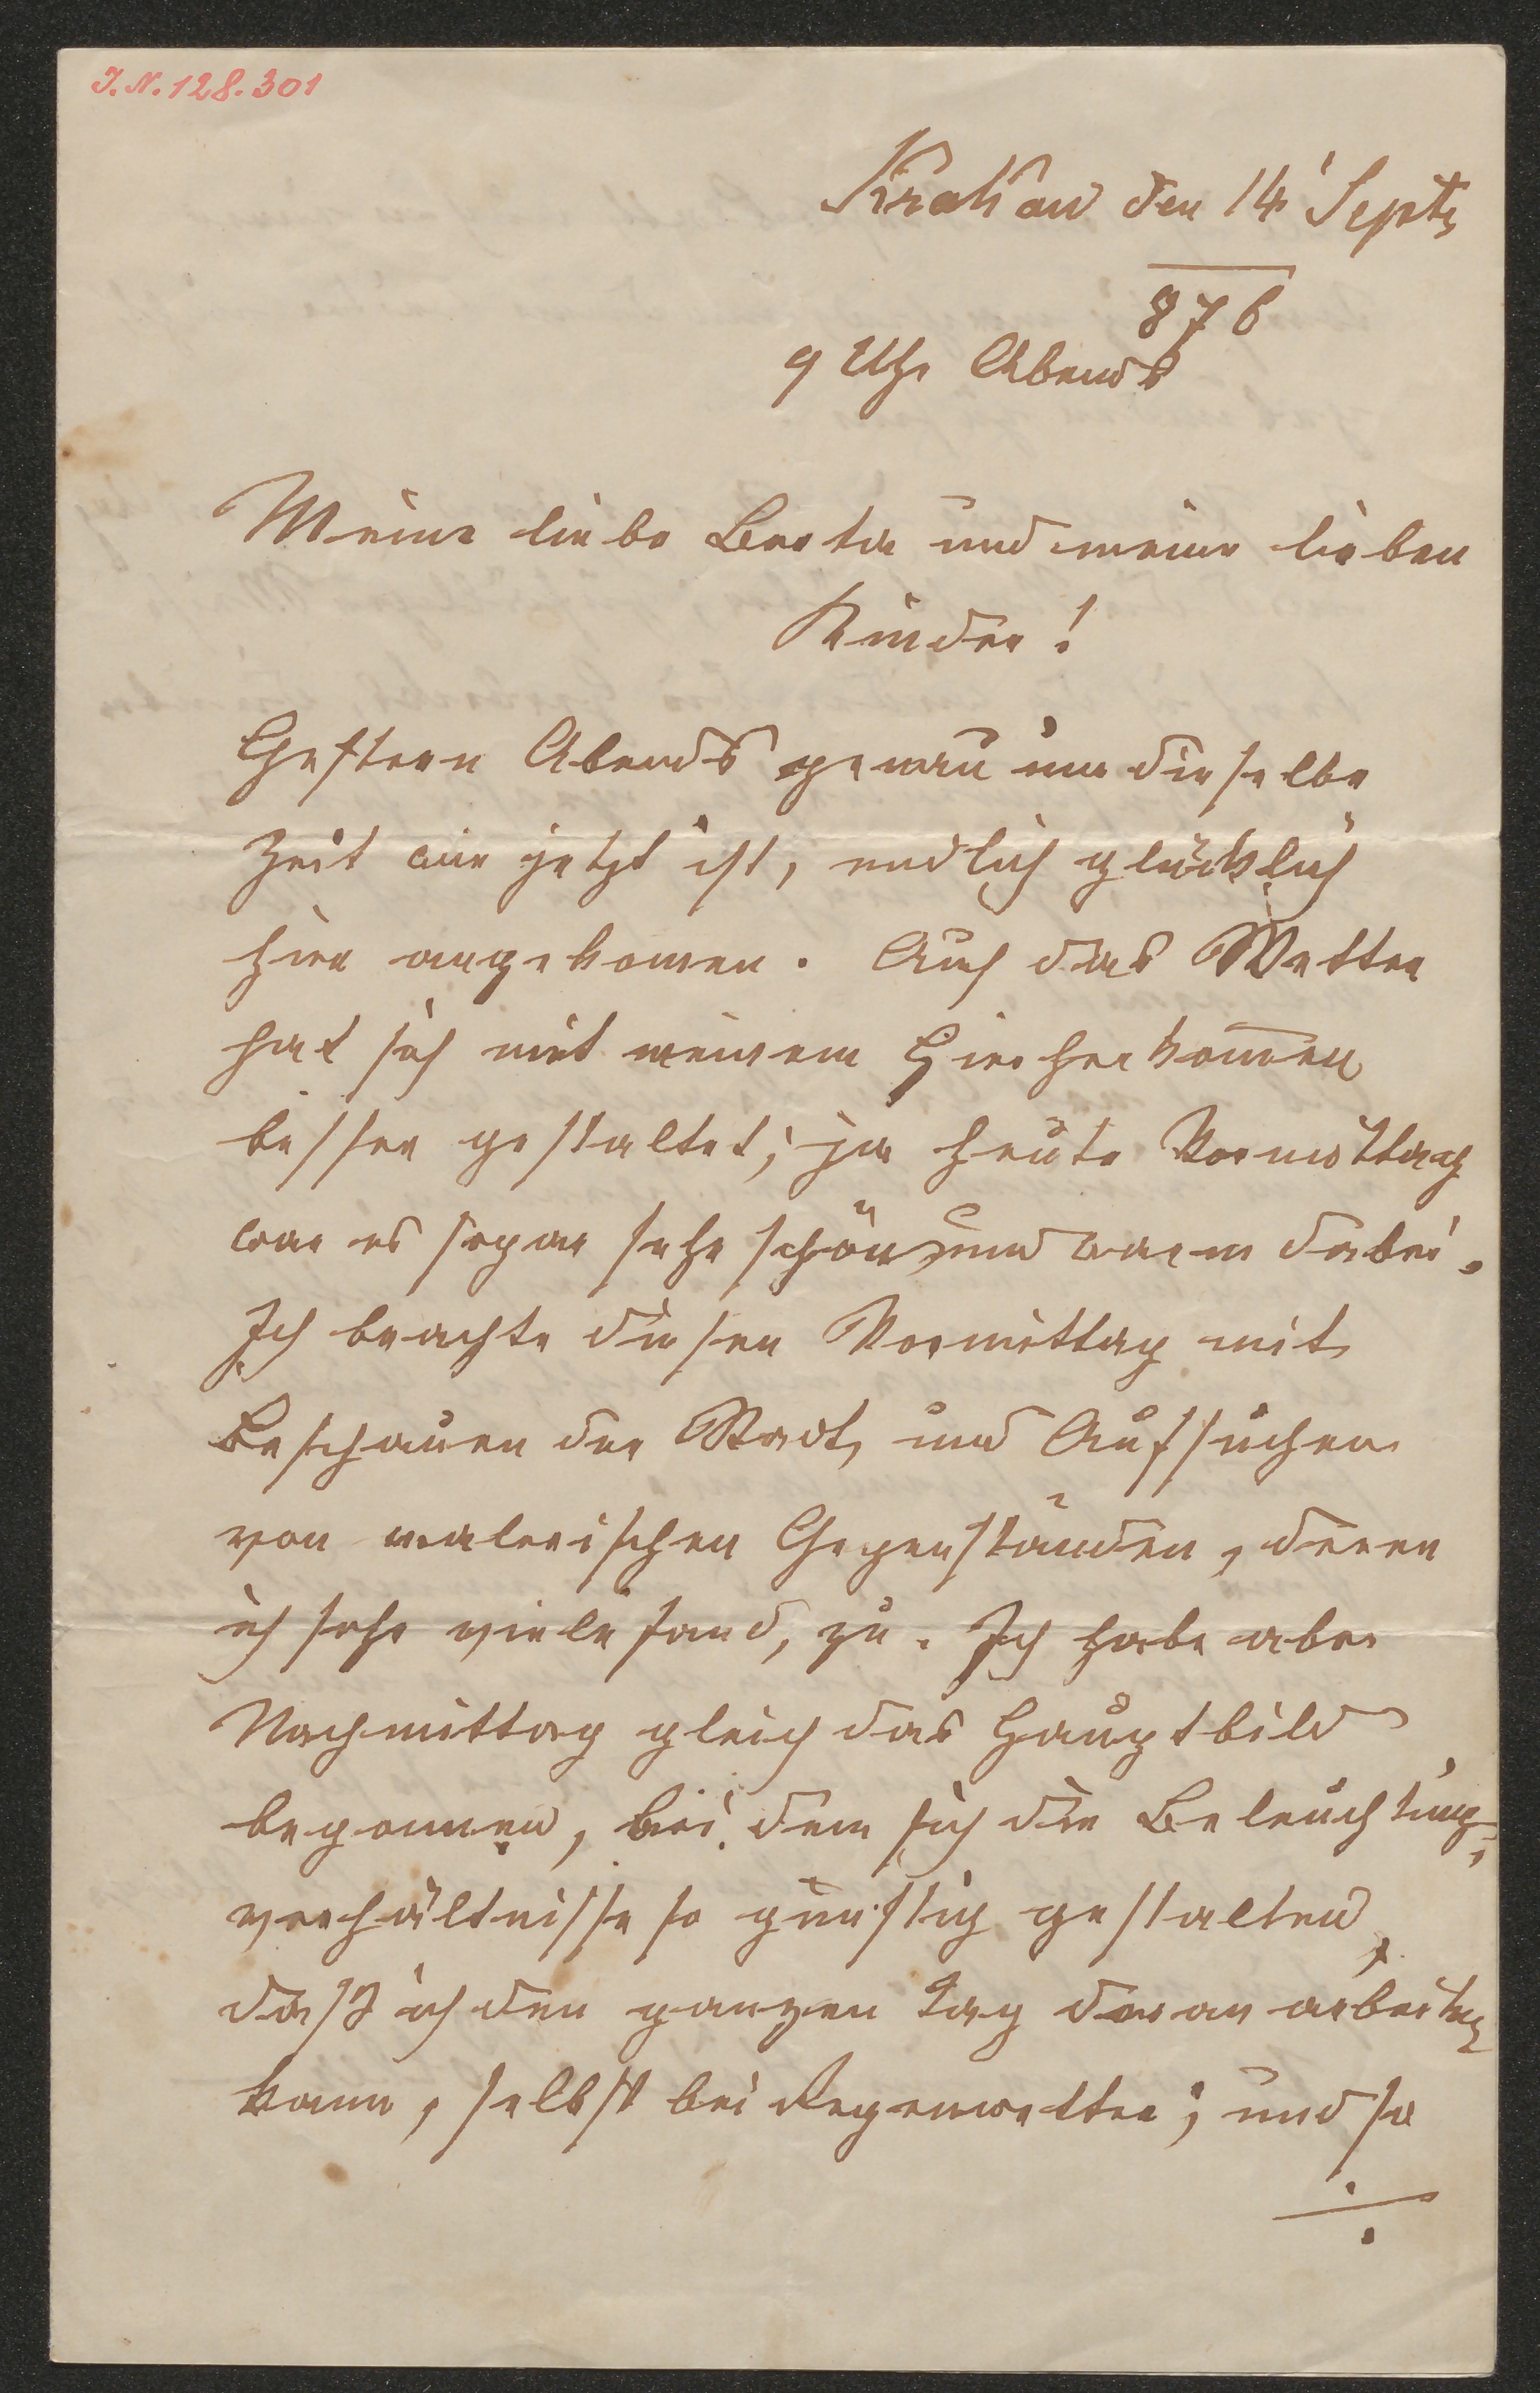 J.N. 128.301
Krakau den 14' Septr
876
9 Uhr Abends
Meine liebe Berta und meine lieben
Kinder!
Gestern Abends genau um dieselbe
Zeit wie jetzt ist, endlich glücklich
hier angekomen. Auch das Wetter
hat sich mit meinem Hierherkom̄en
besser gestaltet; ja heute Vormittag
war es sogar sehr schön und warm dabei.
Ich brachte diesen Vormittag mit
Beschauen der Stadt, und Aufsuchen
von malerischen Gegenständen, deren
ich sehr viele fand, zu. Ich habe aber
Nachmittag gleich das Hauptbild
begonnen, bei dem sich die Beleuchtungs
verhältnisse so günstig gestalten,
daß ich den ganzen Tag daran arbeiten
kann, selbst bei Regenwetter; und so
./.